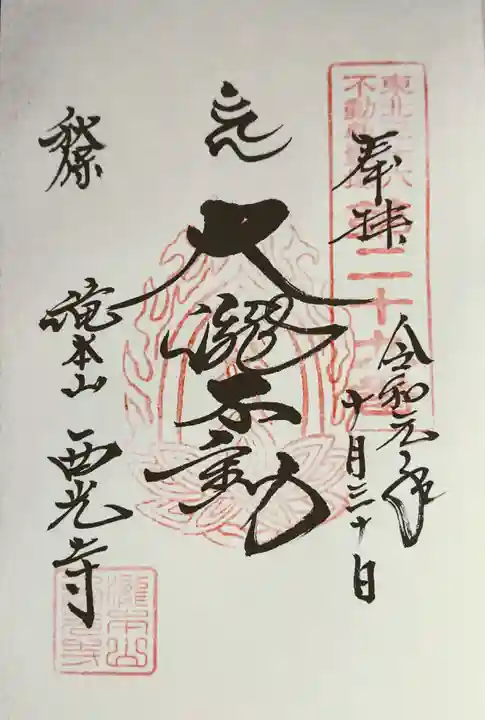 奉拝
令和元年
十月三十日
大瀧不動
秋保
滝本山 西光寺
東北三十六
不動尊霊場
第二十七番